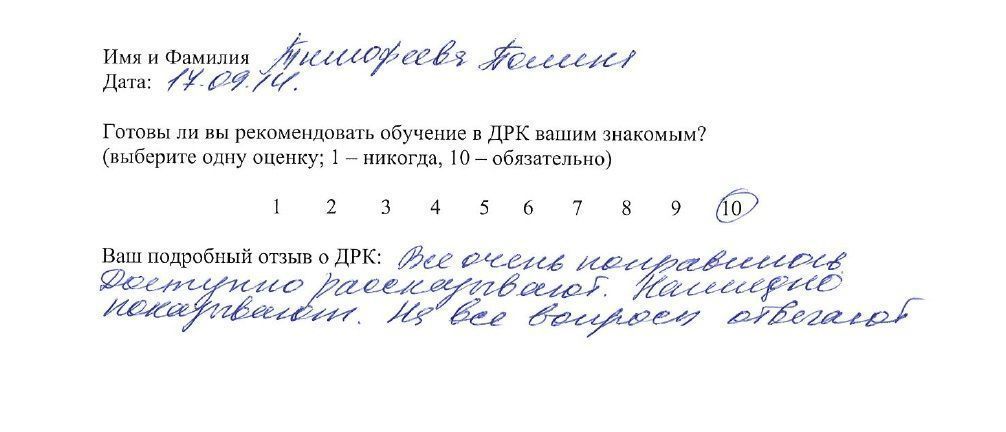 Имя и Фамилия Тимофеева Полина
Дата: 17.09.14.
Готовы ли вы рекомендовать обучение в ДРК вашим знакомым?
(выберите одну оценку; 1 – никогда, 10 – обязательно)
1 2 3 4 5 6 7 8 9 10
Ваш подробный отзыв о ДРК: Все очень понравилось
Доступно рассказывают. Наглядно
показывают. На все вопросы отвечают